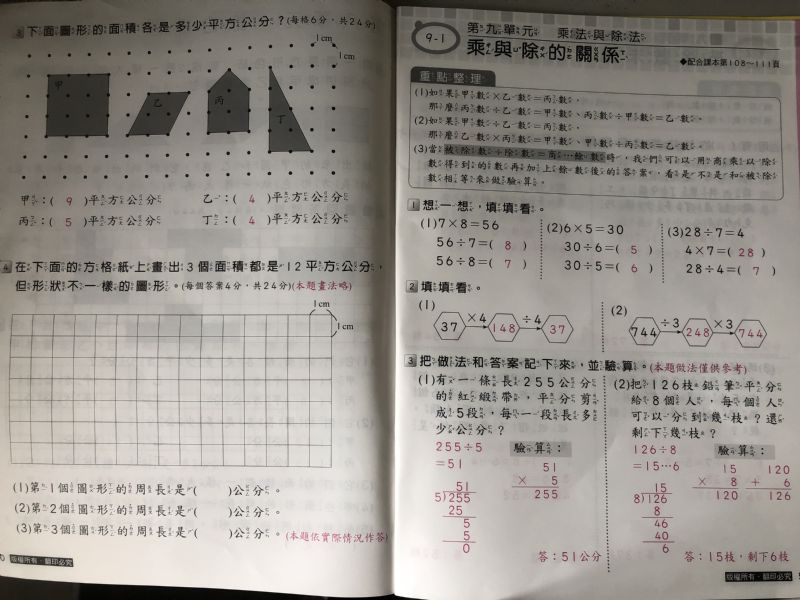 3 下面圖形的面積各是多少平方公分？(每格6分，共24分)
1cm
1cm
甲
乙
丙
丁
甲：( 9 )平方公分 乙：( 4 )平方公分
丙：( 5 )平方公分 丁：( 4 )平方公分
4 在下面的方格紙上畫出3個面積都是12平方公分，
但形狀不一樣的圖形。(每個答案4分，共24分)(本題畫法略)
1cm
1cm
(1)第1個圖形的周長是( )公分。
(2)第2個圖形的周長是( )公分。
(3)第3個圖形的周長是( )公分。(本題依實際情況作答)
版權所有．翻印必究
9-1
第九單元 乘法與除法
乘與除的關係
◆配合課本第108～111頁
重點整理
(1)如果甲數×乙數＝丙數，
那麼丙數÷甲數＝乙數、丙數÷乙數＝甲數。
(2)如果甲數÷乙數＝丙數，
那麼乙數×丙數＝甲數、甲數÷丙數＝乙數。
(3)當被除數÷除數＝商…餘數時，我們可以用商乘以除
數得到的數再加上餘數後的答案，看是不是和被除
數相等來做驗算。
1 想一想，填填看。
(1)7×8＝56 (2)6×5＝30 (3)28÷7＝4
56÷7＝( 8 ) 30÷6＝( 5 ) 4×7＝( 28 )
56÷8＝( 7 ) 30÷5＝( 6 ) 28÷4＝( 7 )
2 填填看。
(1) (2)
37 ×4 148 ÷4 37
744 ÷3 248 ×3 744
3 把做法和答案記下來，並驗算。(本題做法僅供參考)
(1)有一條長255公分
的紅緞帶，平分剪
成5段，每一段長多
少公分？
255÷5 驗算：
＝51
51
× 5
255
51
5)255
25
5
5
0
答：51公分
(2)把126枝鉛筆平分
給8個人，每個人
可以分到幾枝？還
剩下幾枝？
126÷8 驗算：
＝15…6
15 120
× 8 + 6
120 126
15
8)126
8
46
40
6
答：15枝，剩下6枝
版權所有．翻印必究